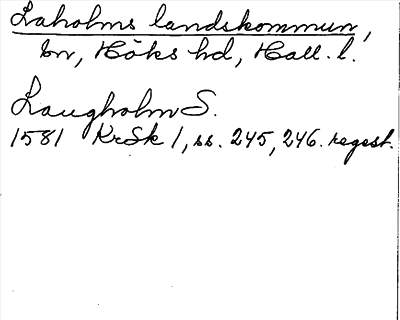 Laholms landskommun,
bn, Höks hd, Hall. l.
Laugholm S.
1581 KrSk 1, ss. 245, 246. regest.